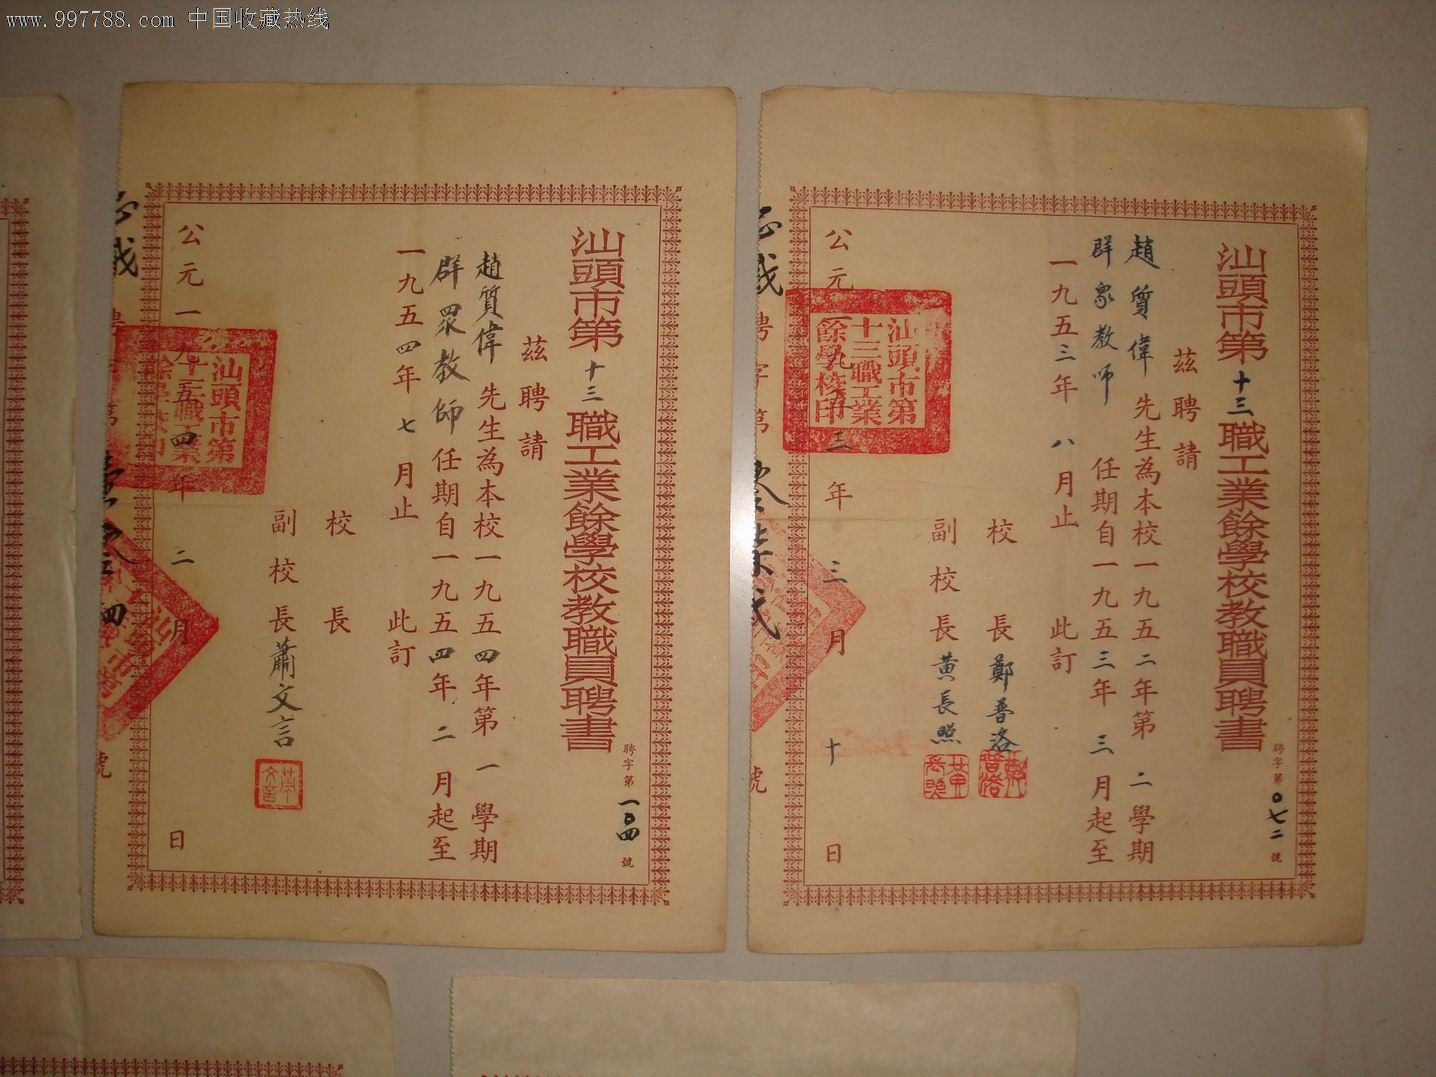 www.997788.com 中国收藏热线
汕頭市第十三職工業餘學校教職員聘書
聘字第〇七二號
茲聘請
趙質偉先生為本校一九五二年第二學期
群眾教師 任期自一九五三年三月起至
一九五三年八月止 此訂
校長鄭普洛
副校長黃長照
公元一九五三年三月十日
汕頭市第
十三職工業
餘學校印
汕頭市第十三職工業餘學校教職員聘書
聘字第一〇四號
茲聘請
趙質偉先生為本校一九五四年第一學期
群眾教師任期自一九五四年二月起至
一九五四年七月止 此訂
校長
副校長蕭文言
公元一九五四年二月 日
汕頭市第
十三職工業
餘學校印